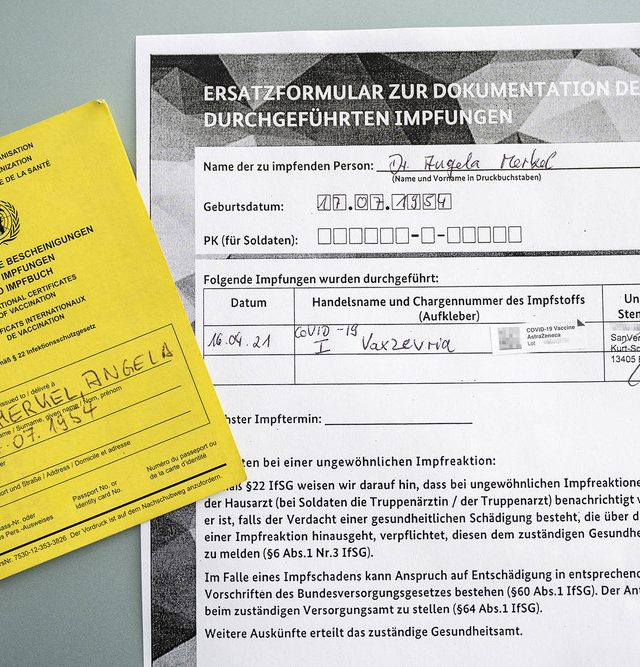 ANISATION
ANIZATION
E DE LA SANTÉ
E BESCHEINIGUNGEN
IMPFUNGEN
D IMPFBUCH
NATIONAL CERTIFICATES
OF VACCINATION
FICATS INTERNATIONAUX
DE VACCINATION
mäß § 22 Infektionsschutzgesetz
issued to / délivré à
MERKEL, ANGELA
name / Surname, given name / Nom, prénom
.07.1954
ort und Straße / Address / Domicile et adresse
Passport No. or
Identity card No.
Numéro du passeport ou
de la carte d'identité
ass-Nr. oder
des Pers.-Ausweises
rsNr. 7530-12-353-3826 Der Vordruck ist auf dem Nachschubweg anzufordern.
ERSATZFORMULAR ZUR DOKUMENTATION DE
DURCHGEFÜHRTEN IMPFUNGEN
Name der zu impfenden Person: Dr. Angela Merkel
(Name und Vorname in Druckbuchstaben)
Geburtsdatum: 17.07.1954
PK (für Soldaten):
Folgende Impfungen wurden durchgeführt:
Datum Handelsname und Chargennummer des Impfstoffs Un
(Aufkleber) Stem
16.04.21 COVID-19 COVID-19 Vaccine SanVer
I Vaxzevria AstraZeneca Kurt-Sc
Lot 13405 B
hster Impftermin:
ten bei einer ungewöhnlichen Impfreaktion:
äß §22 IfSG weisen wir darauf hin, dass bei ungewöhnlichen Impfreaktione
der Hausarzt (bei Soldaten die Truppenärztin / der Truppenarzt) benachrichtigt w
er ist, falls der Verdacht einer gesundheitlichen Schädigung besteht, die über d
einer Impfreaktion hinausgeht, verpflichtet, diesen dem zuständigen Gesundhe
zu melden (§6 Abs.1 Nr.3 IfSG).
Im Falle eines Impfschadens kann Anspruch auf Entschädigung in entsprechen
Vorschriften des Bundesversorgungsgesetzes bestehen (§60 Abs.1 IfSG). Der Ant
beim zuständigen Versorgungsamt zu stellen (§64 Abs.1 IfSG).
Weitere Auskünfte erteilt das zuständige Gesundheitsamt.